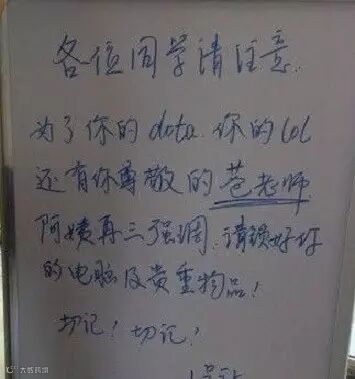 各位同学请注意.
为了你的dota.你的lol
还有你尊敬的苍老师
阿姨再三强调.请锁好你
的电脑及贵重物品!
切记!切记!